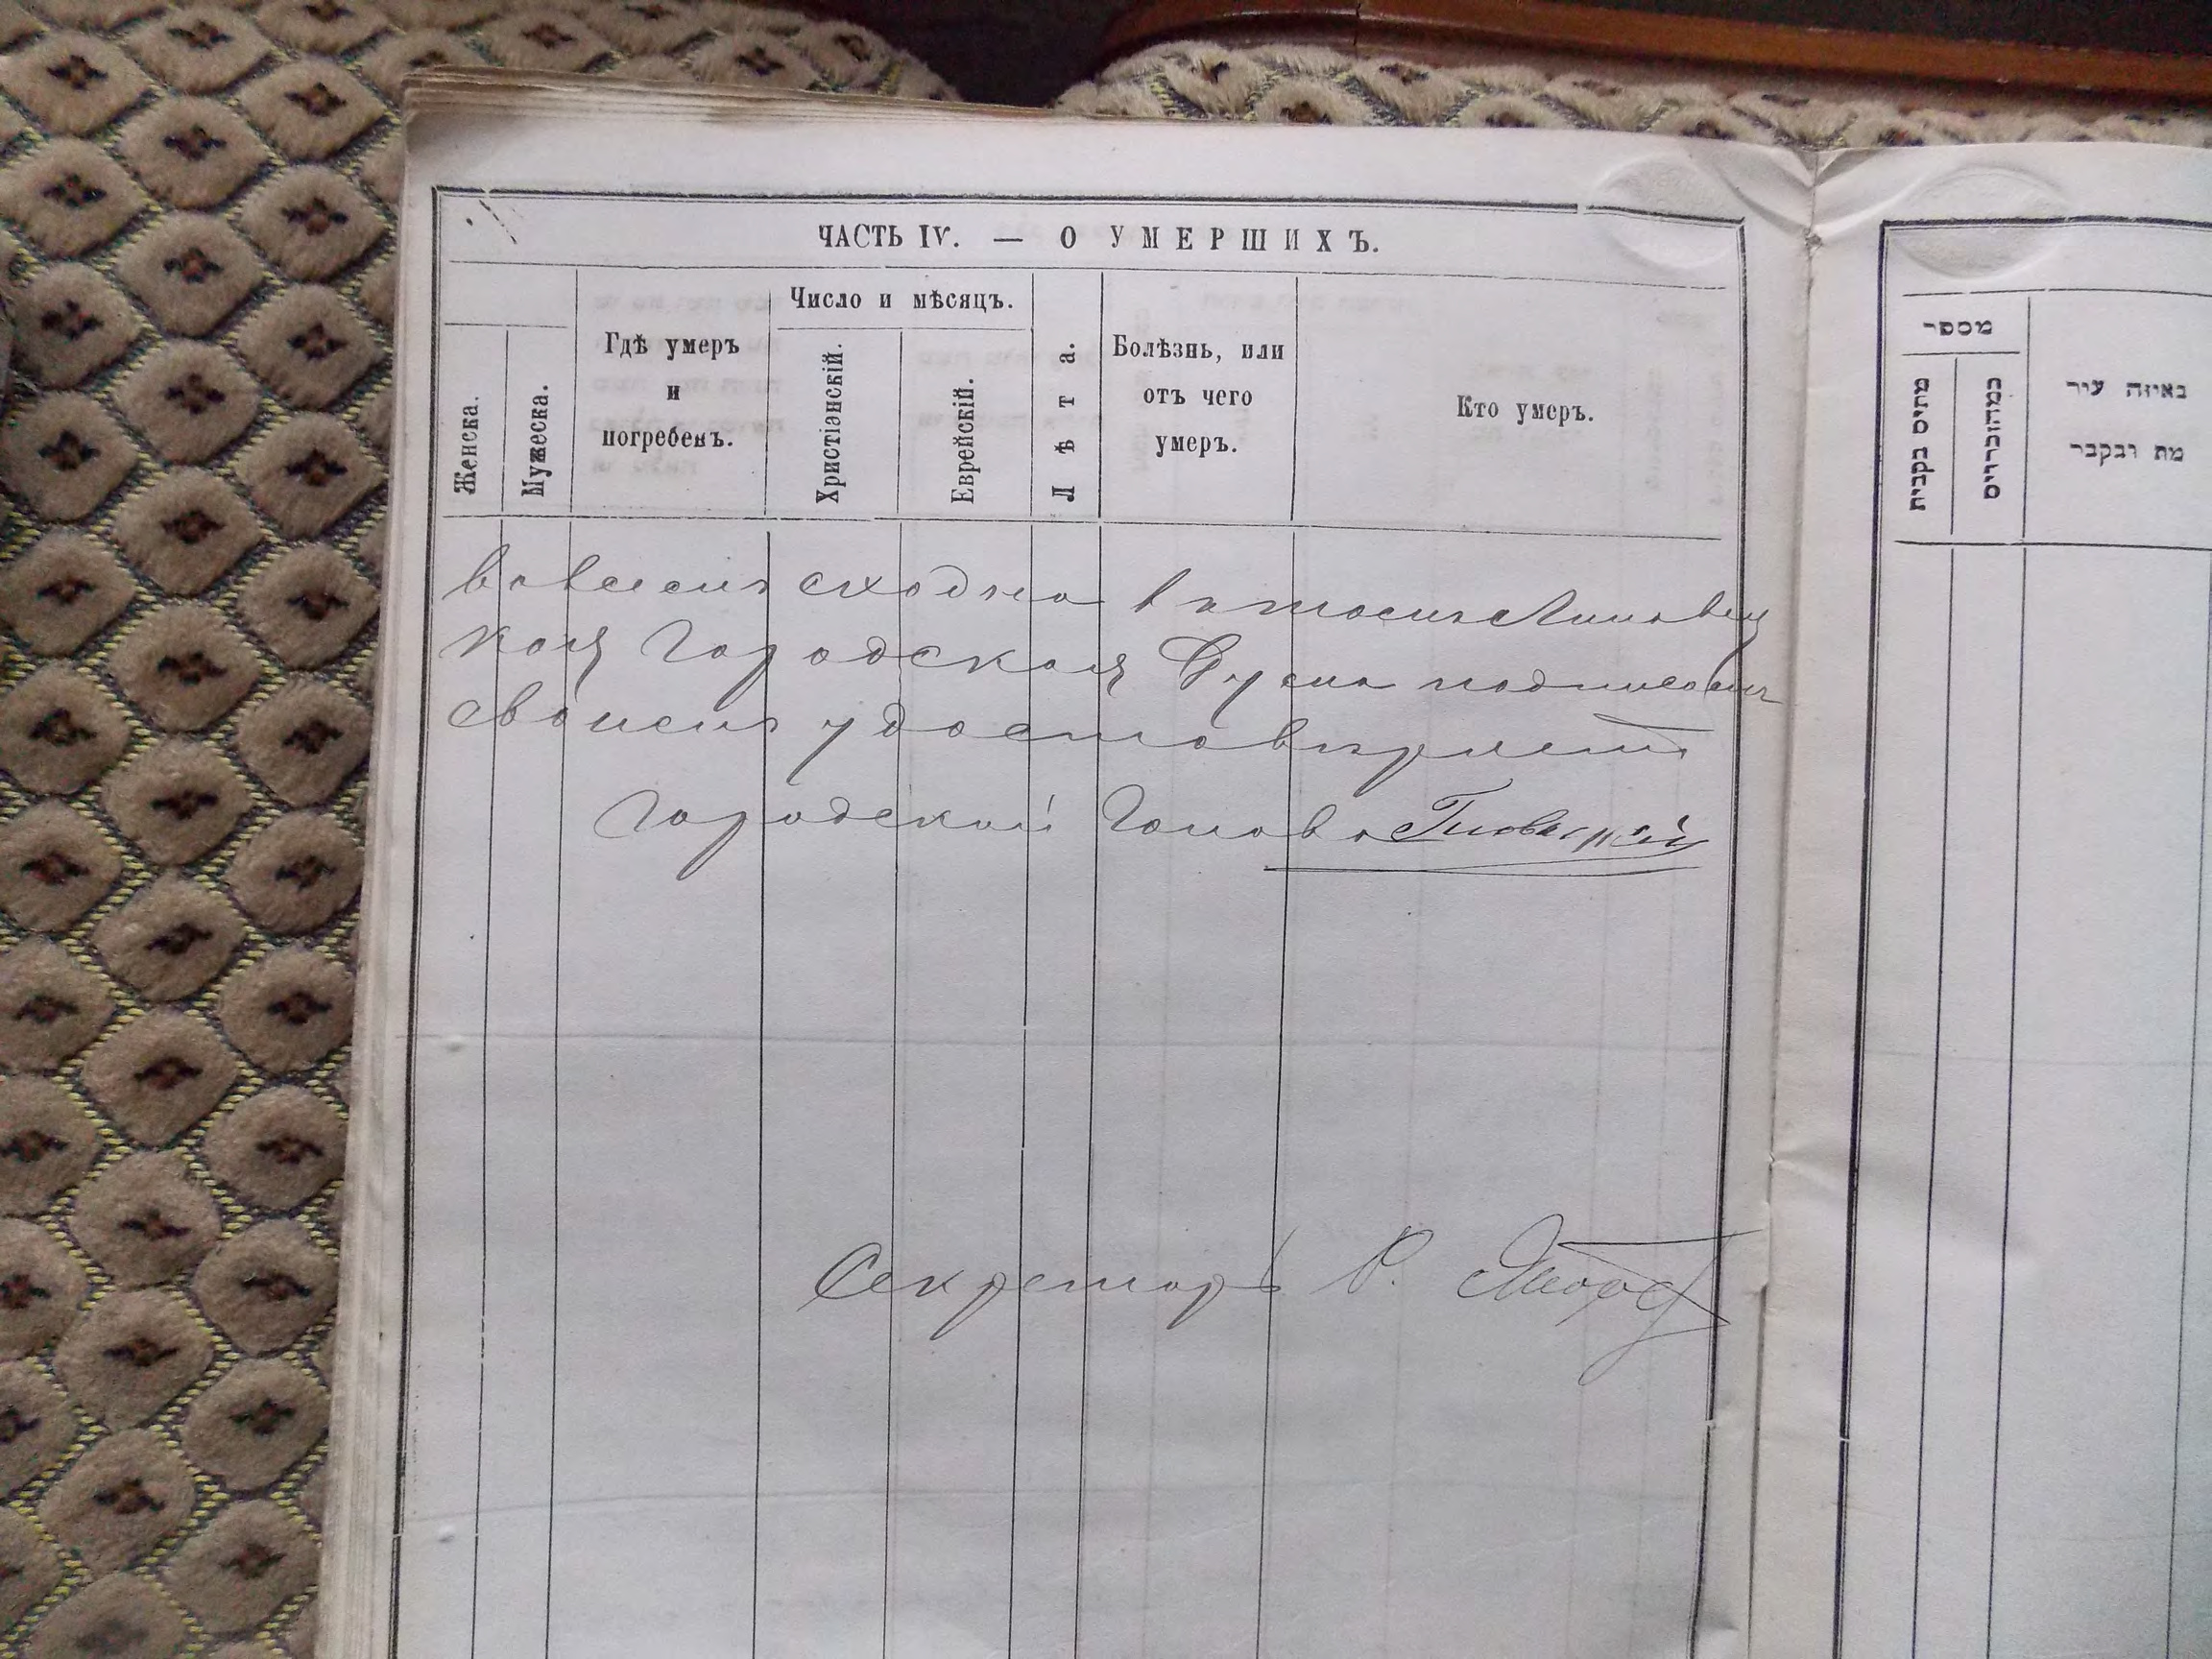 ЧАСТЬ IV. — О УМЕРШИХЪ.
Женска.
Мужеска.
Гдѣ умеръ
и
погребенъ.
Число и мѣсяцъ.
Христіэнскій.
Еврейскій.
Лѣта.
Болѣзнь, или
отъ чего
умеръ.
Кто умеръ.
во всемъ сходна в томъ Липовец
кая Городская Дума подписомъ
своимъ удостовѣряетъ
Городской Голова
Секретарь Р.
מספר
מתים בקבית
כמהוברייס
באיזה עיר
מת ובקבר